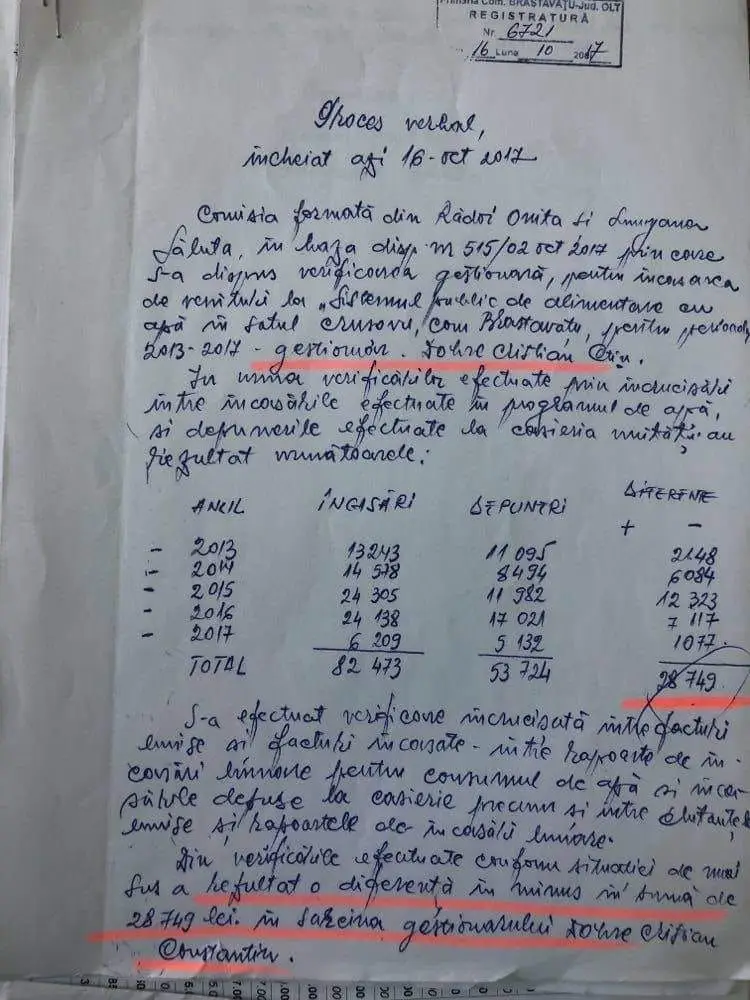 Primaria Com. BRASTAVĂŢU-Jud. OLT
REGISTRATURĂ
Nr. 6721
16 Luna 10 2017
Proces verbal,
încheiat azi 16-oct 2017
Comisia formată din Rădoi Onita si
Săluta, în baza disp. nr 515/02 oct 2017 prin care
s-a dispus verificarea gestionară, pentru încasarea
de venituri la „Sistemul public de alimentare cu
apă în satul Crusovu, com Brastavatu, pentru perioada
2013-2017 - gestionar. Dobre Cristian Ctin.
In urma verificărilor efectuate prin încrucisări
între încasările efectuate în programul de apă,
si depunerile efectuate la casieria unității au
rezultat următoarele:
ANUL ÎNCASĂRI DEPUNERI DIFERENTE
+ -
- 2013 13243 11 095 2148
- 2014 14 578 8494 6084
- 2015 24 305 11 982 12 323
- 2016 24 138 17 021 7 117
- 2017 6 209 5 132 1077.
TOTAL 82 473 53 724 28 749
S-a efectuat verificare încrucisată între facturi
emise si facturi încasate - între rapoarte de în-
casări lunare pentru consumul de apă si încas-
ările depuse la casierie precum si între chitanțele
emise și rapoartele de încasări lunare.
Din verificările efectuate conform situatiei de mai
sus a rezultat o diferență în minus în sumă de
28 749 lei în sarcina gestionarului Dobre Cristian
Constantin.